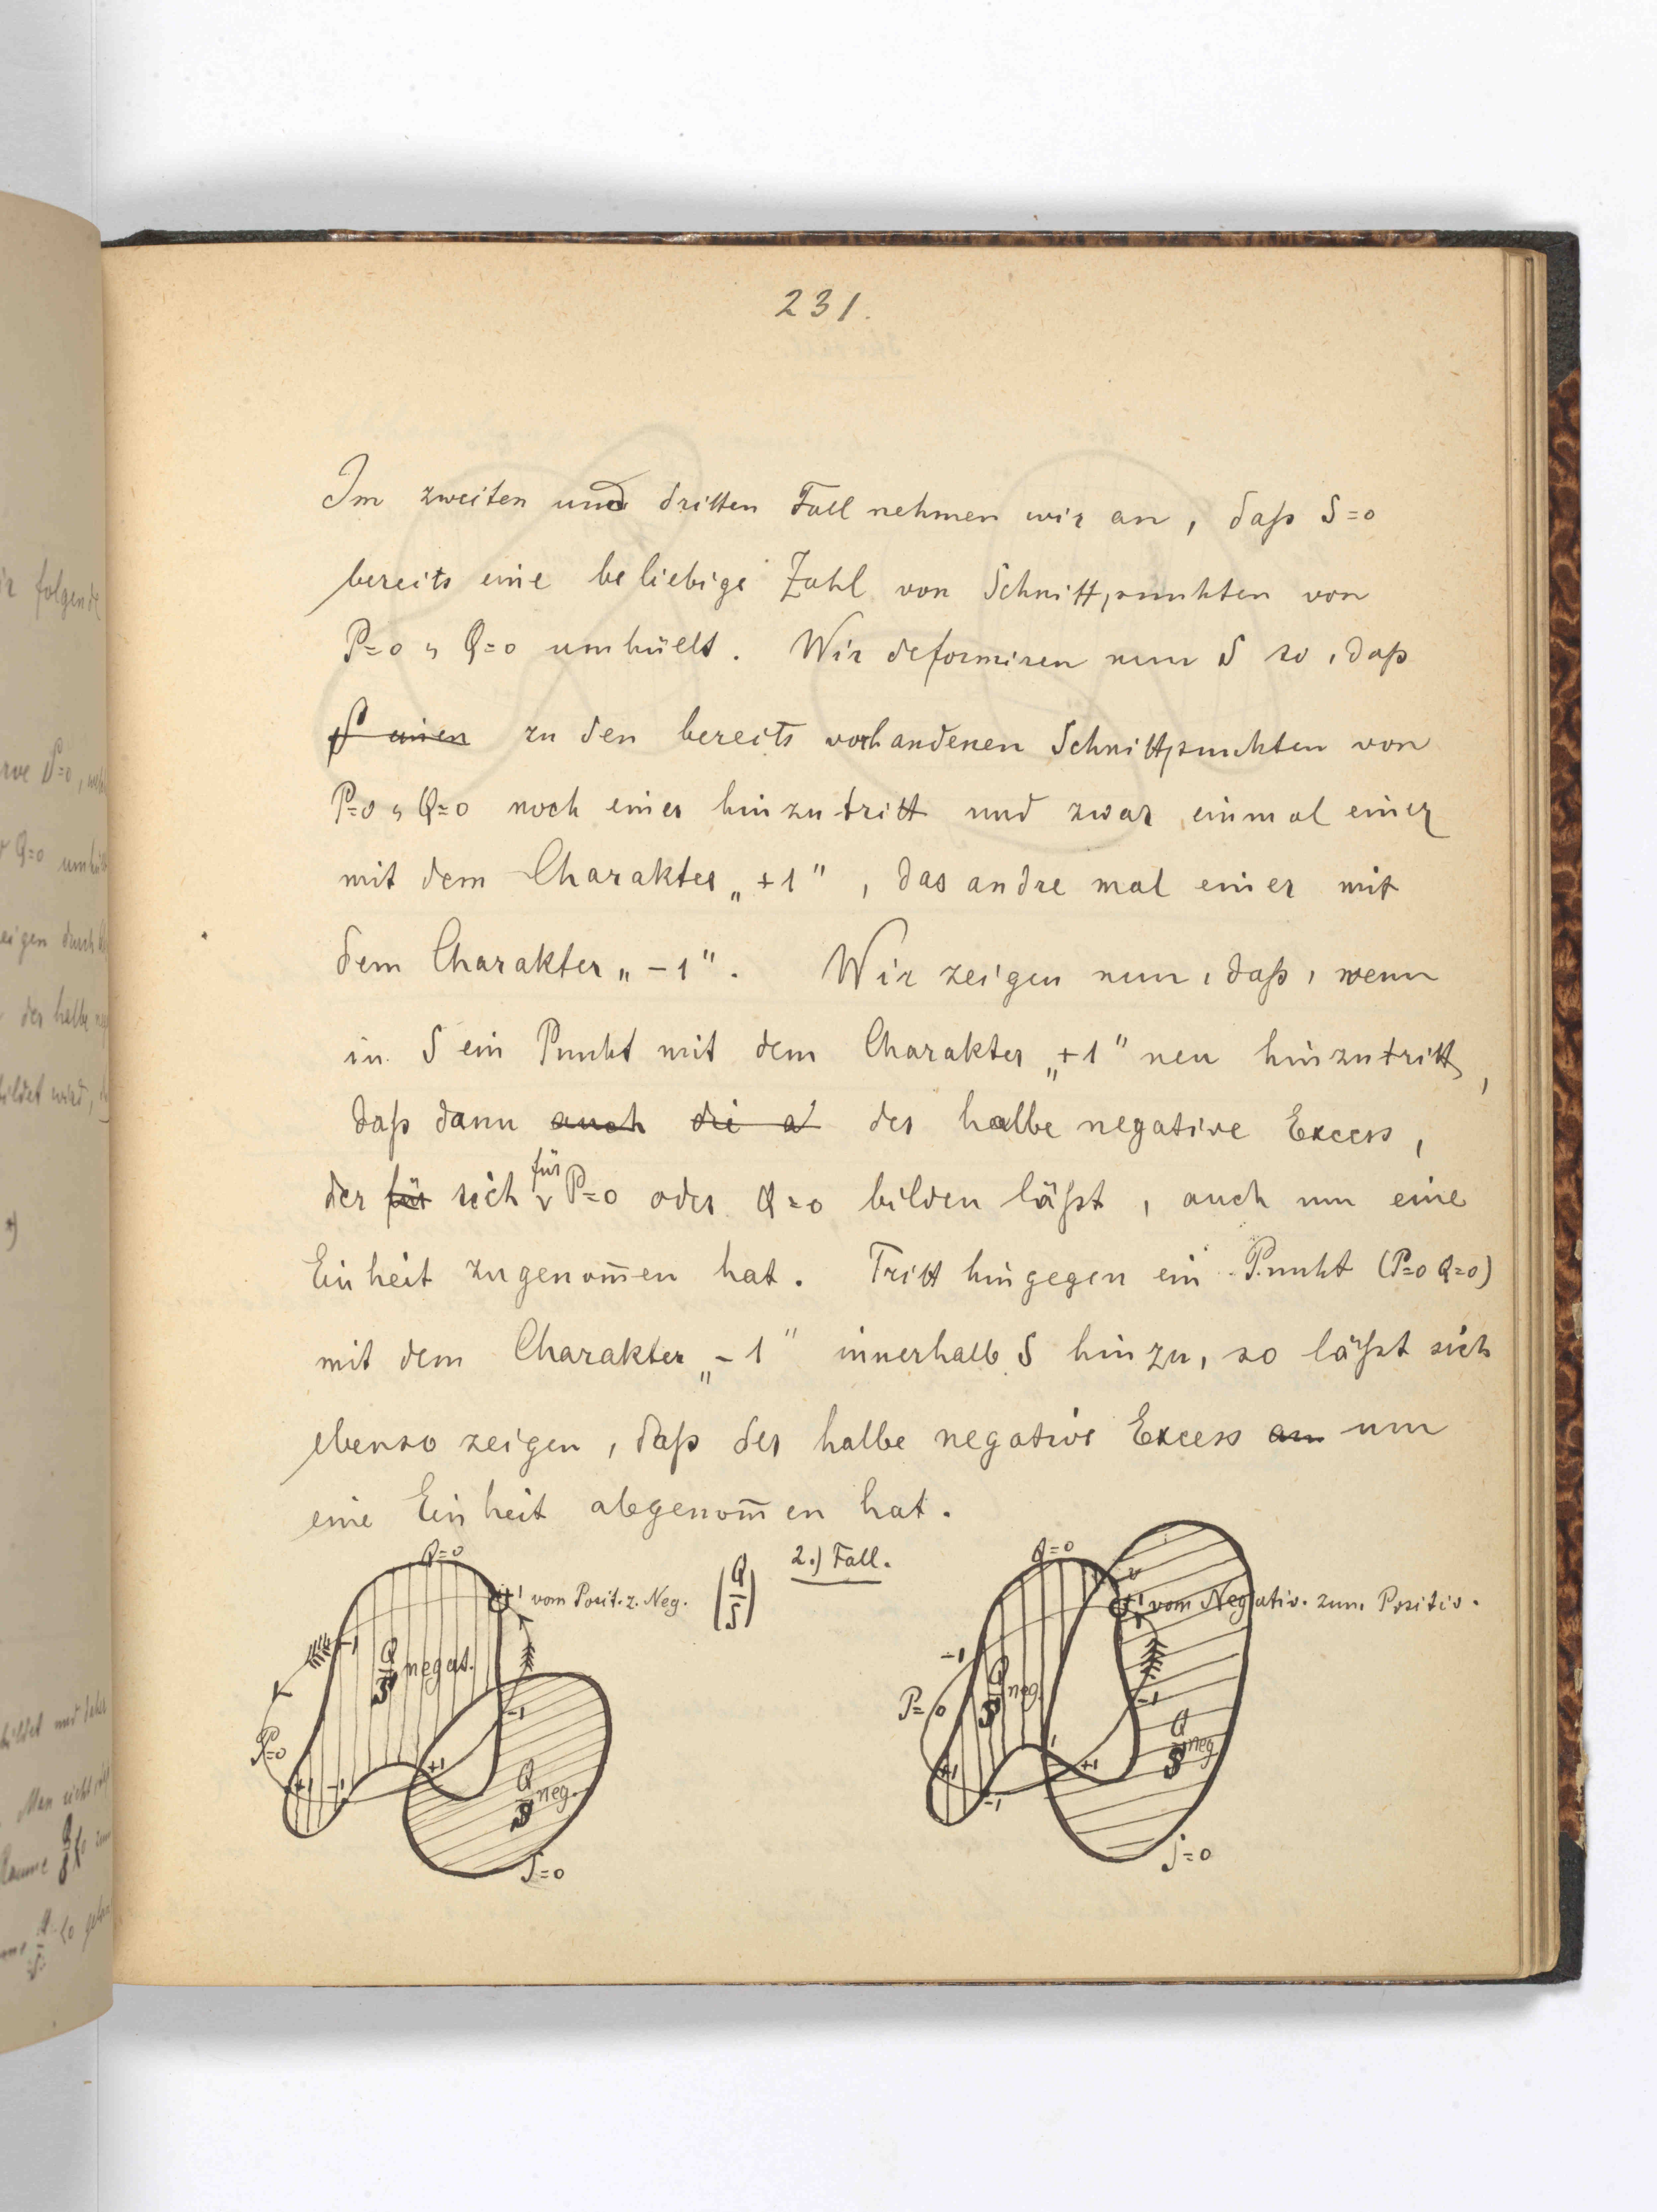 231.
Im zweiten und dritten Fall nehmen wir an, daß S=0
bereits eine beliebige Zahl von Schnittpunkten von
P=0 , Q=0 umhüllt. Wir deformiren nun S so, daß
S einen zu den bereits vorhandenen Schnittpunkten von
P=0 , Q=0 noch einer hinzutritt und zwar einmal einer
mit dem Charakter „+1", das andre mal einer mit
dem Charakter „-1". Wir zeigen nun, daß, wenn
in S ein Punkt mit dem Charakter „+1" neu hinzutritt,
daß dann auch die a der halbe negative Excess,
der für sich für P=0 oder Q=0 bilden läßt, auch um eine
Einheit zugenom̄en hat. Tritt hingegen ein Punkt (P=0 Q=0)
mit dem Charakter „-1" innerhalb S hinzu, so läßt sich
ebenso zeigen, daß der halbe negative Excess an um
eine Einheit abgenom̄en hat.
2.) Fall.
Q=0
+1 vom Posit. z. Neg. (Q/S)
-1
Q/S negat.
P=0
-1
+1 -1
+1
Q/S neg.
S=0
Q=0
+1 vom Negativ. zum Positiv.
-1
Q/S neg.
P=0
-1
Q/S neg.
+1
-1
+1
S=0
ir folgende
rve S=0,
Q=0
eigen durch
der halbe
bildet wird,
Man sieht
Q/S
Q/S <0